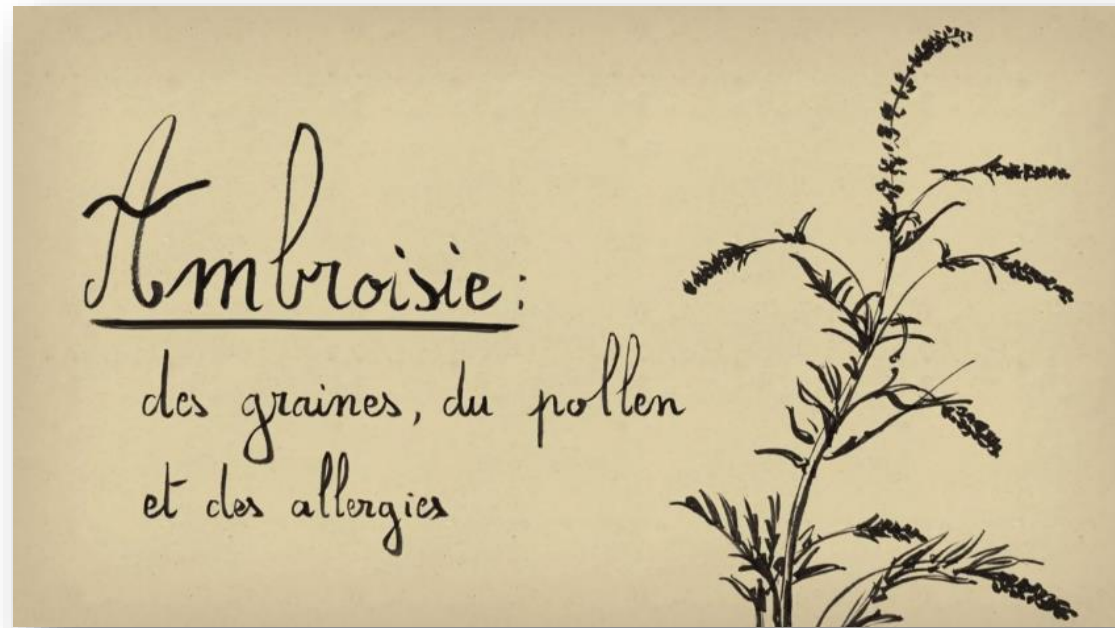 Ambroisie :
des graines, du pollen
et des allergies